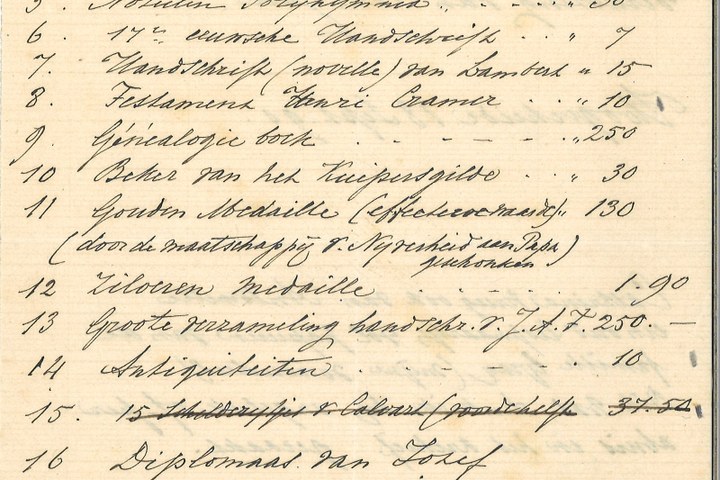 5. Notulen Polyhymnia . . . " 50
6. 17de eeuwsche Handschrift . . " 7
7. Handschrift (novelle) van Lambert " 15
8. Testament Henri Cramer . " 10
9. Généalogie boek . - - - . " 250
10 Beker van het Kuipersgilde . . " 30
11 Gouden Medaille (effectieve waarde) " 130
(door de maatschappij v. Nijverheid aan Papa
geschonken)
12 Zilveren medaille . . . . 1.90
13 Groote verzameling handschr. v. J.A.F. 250.—
14 Antiquiteiten . . - - . 10
15. 15 Schilderijtjes v. Calvart ( 37.50
16 Diplomaas van Jozef